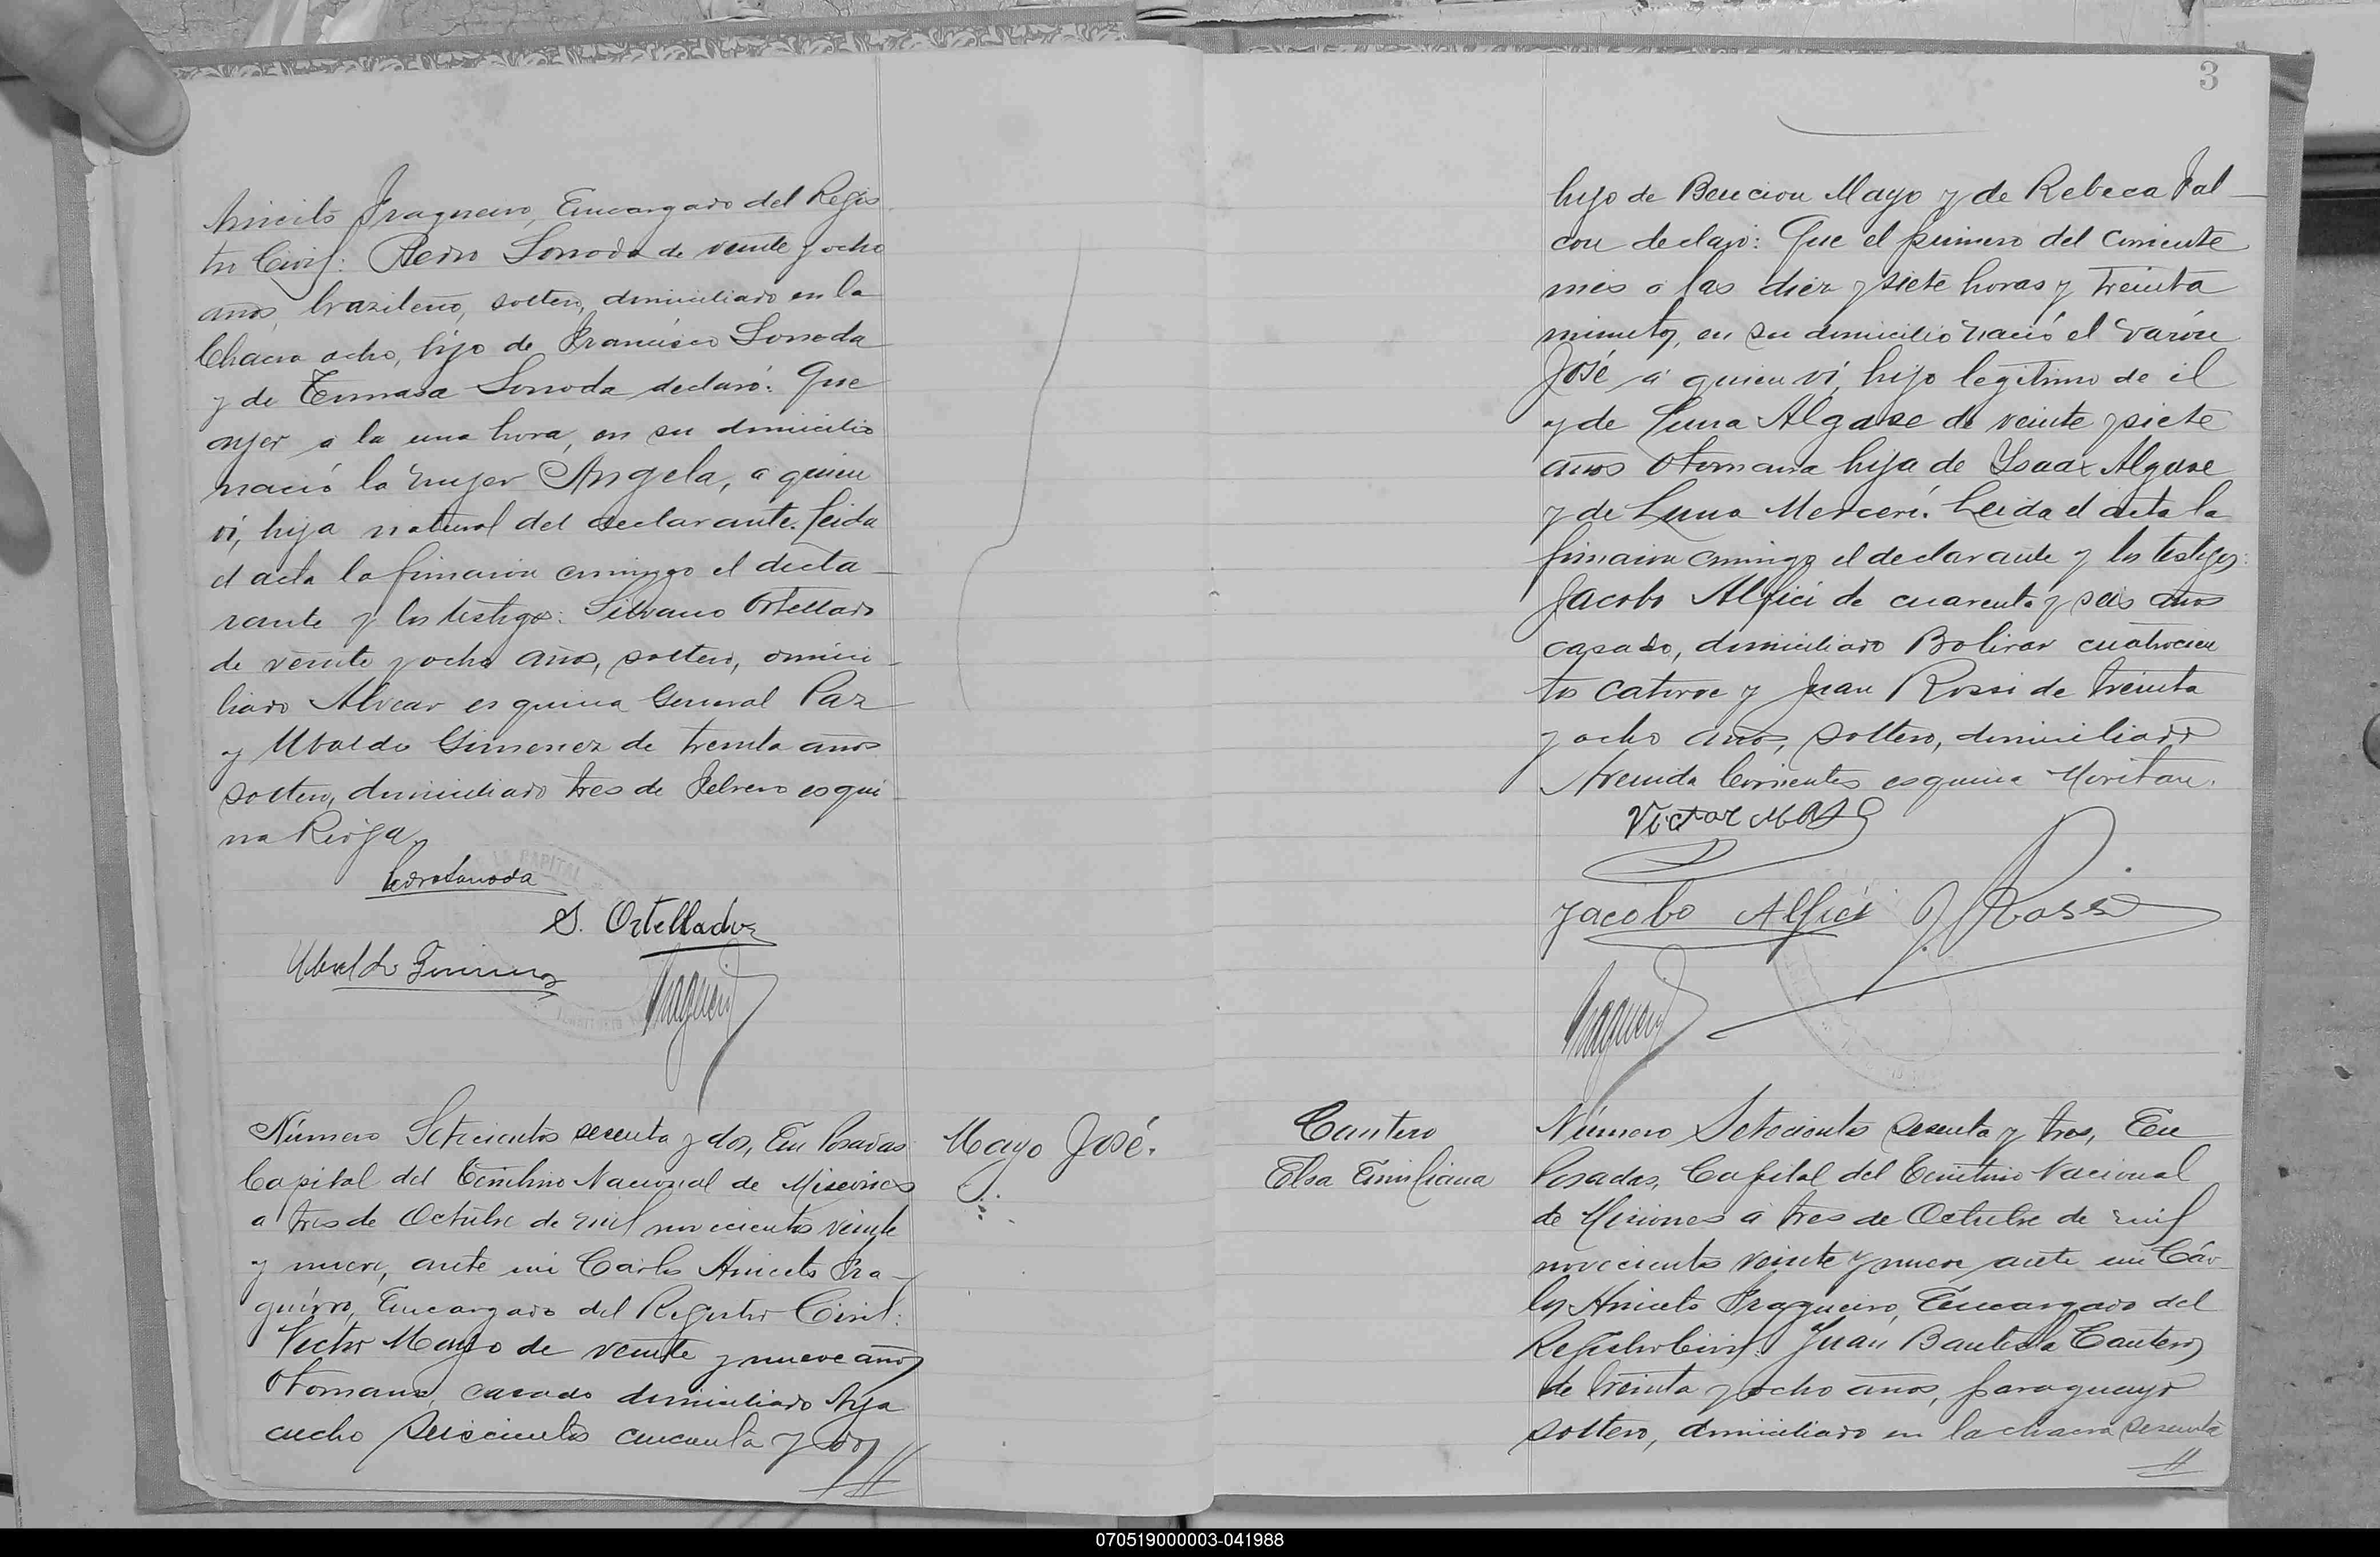 Aniceto Fragueiro, Encargado del Regis
tro Civil: Pedro Sonoda de veinte y ocho
años, brazileno, soltero, domiciliado en la
Chacra ocho, hijo de Francisco Sonoda
y de Tomasa Sonoda declaró: Que
ayer a la una hora, en su domicilio
nació la mujer Angela, a quien
ví, hija natural del declarante. Leida
el acta la firmaron conmigo el decla-
rante y los testigos: Silvano Ortellado
de veinte y ocho años, soltero, domici-
liado Alvear esquina General Paz
y Ubaldo Gimenez de treinta años
soltero, domiciliado tres de Febrero esqui
na Rioja.
Pedro Sonoda
S. Ortellado
Ubaldo Gimenez
Fragueiro
Número Setecientos sesenta y dos, En Posadas
Capital del Territorio Nacional de Misiones
a tres de Octubre de mil novecientos veinte
y nueve, ante mi Carlos Aniceto Fra-
gueiro, Encargado del Registro Civil:
Victor Mayo de veinte y nueve años
Otomano, casado domiciliado Aya
cucho seiscientos cincuenta y dos
Mayo José.
3
hijo de Bencion Mayo y de Rebeca Fal-
con declaró: Que el primero del corriente
mes a las diez y siete horas y treinta
minutos, en su domicilio nació el varón
José a quien ví, hijo legítimo de él
y de Luna Algase de veinte y siete
años Otomana hija de Ysaac Algase
y de Luna Merceri. Leida el acta la
firmaron conmigo el declarante y los testigos:
Jacobo Alfici de cuarenta y seis años
casado, domiciliado Bolivar cuatrocien
tos catorce y Juan Rossi de treinta
y ocho años, soltero, domiciliado
Avenida Corrientes esquina Moritan.
Victor Mayo
Jacobo Alfici J Rossi
Fragueiro
Cantero
Elsa Emiliana
Número Setecientos sesenta y tres, En
Posadas, Capital del Territorio Nacional
de Misiones a tres de Octubre de mil
novecientos veinte y nueve ante mi Cár
los Aniceto Fragueiro, Encargado del
Registro Civil: Juan Bautista Cantero
de treinta y ocho años, paraguayo
soltero, domiciliado en la chacra sesenta
070519000003-041988